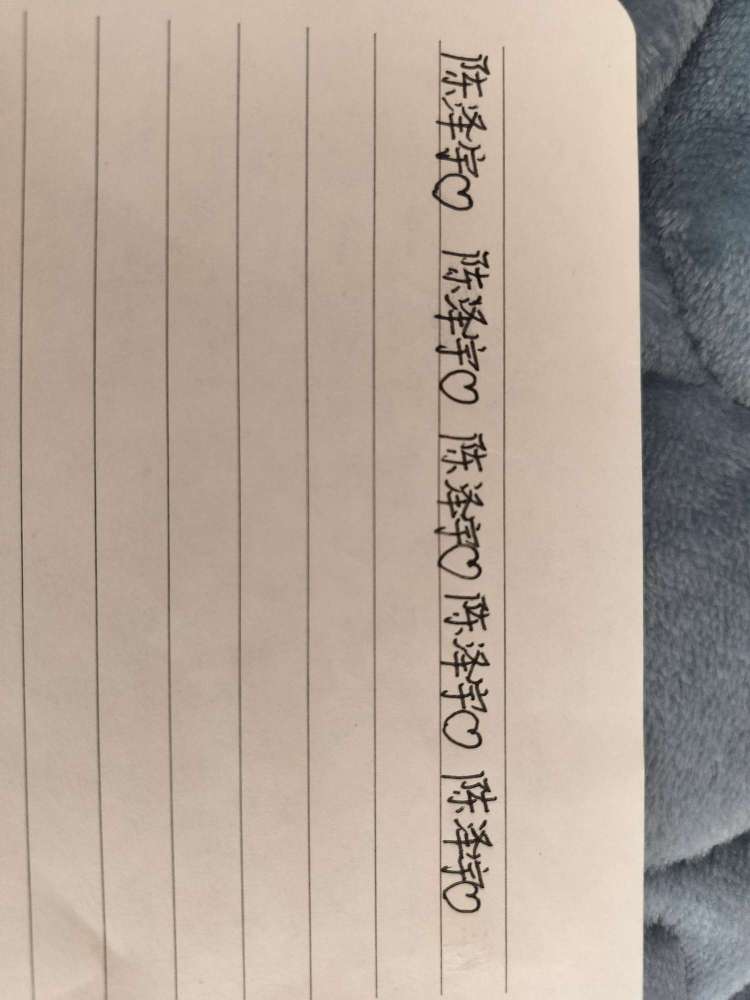 陈泽宇♡ 陈泽宇♡ 陈泽宇♡ 陈泽宇♡ 陈泽宇♡